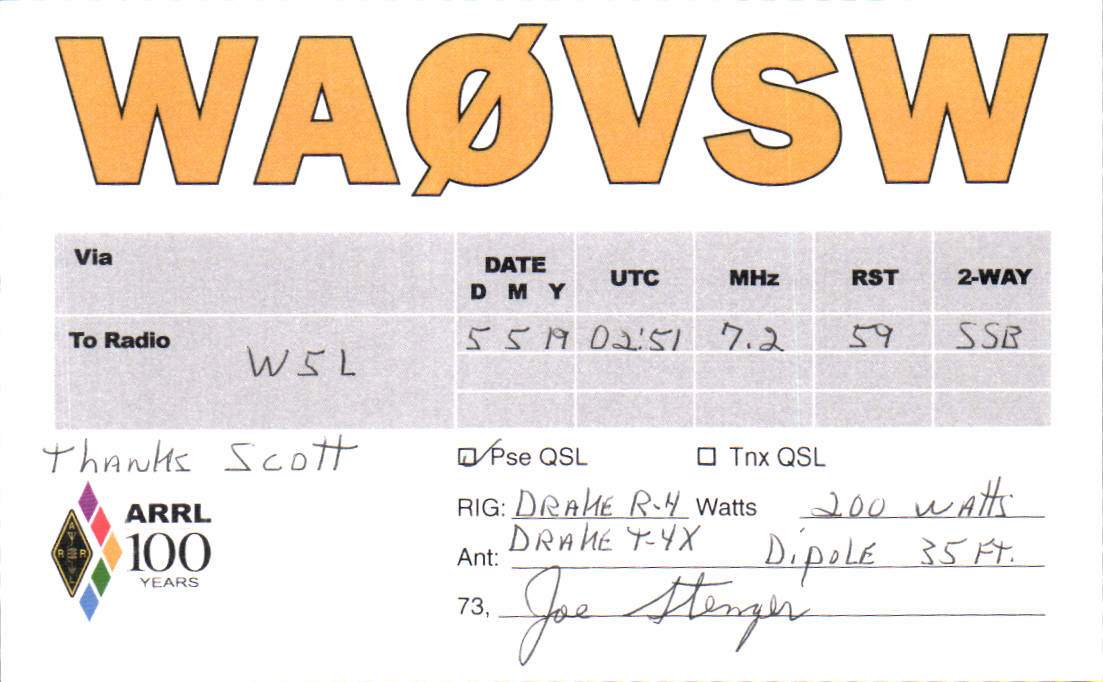 WAØVSW
Via
DATE
D M Y
UTC
MHz
RST
2-WAY
To Radio W5L
5 5 19 02:51 7.2 59 SSB
Thanks Scott
☑ Pse QSL ☐ Tnx QSL
ARRL
100
YEARS
A
R R
L
RIG: DRAKE R-4 Watts 200 watts
DRAKE T-4X
Ant: Dipole 35 FT.
73, Joe Stenger